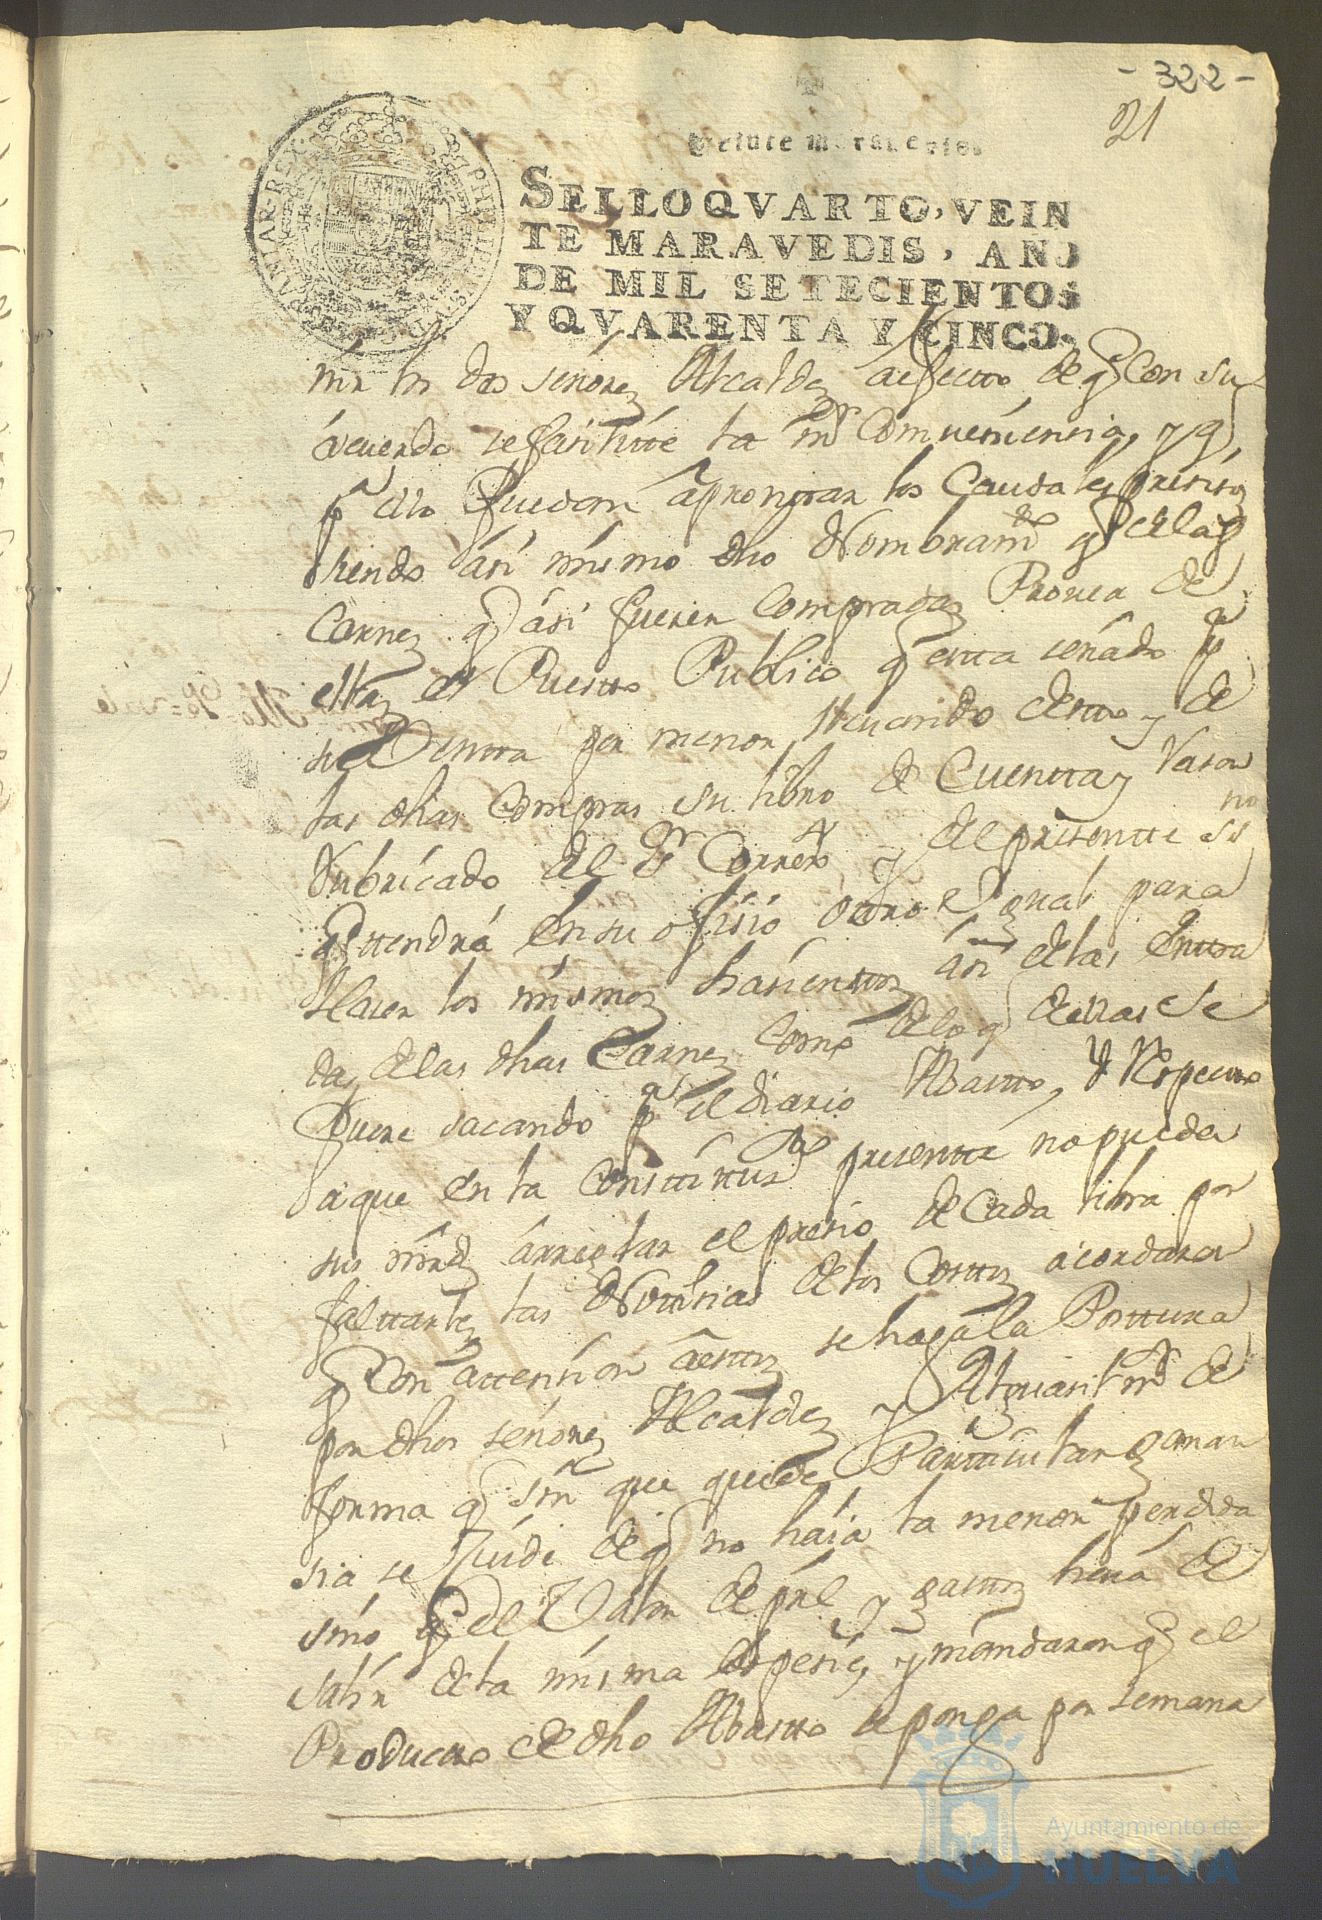 - 322 -
21
Veinte maravedis.
SELLO QVARTO, VEIN
TE MARAVEDIS, AÑO
DE MIL SETECIENTOS
Y QVARENTA Y CINCO.
PHILIPPUS
nir los dhos señores Alcaldes aefecto de q Con su
acuerdo se fasilitte la mr Combeniensia, y q
pa ello Puedan aprontar los Caudales presisos
siendo asi mismo dho Nombramto q de las
Carnes q asi fueren Compradas Provea de
ellas el Puesto Publico q esta señado pa
su Ventta por menor, lleuando desto y de
las dhas Compras su libro de Cuentta y Rason
Rubricado del Sr Correxr y del presentte ssno
q ttendrá en su ofisio ottro Igual para
Haser los mismos hasienttos asi de las Entra
das de las dhas Carnes como de lo q de ellas se
fuere sacando pa el diario Abastto, y Respectto
a que en la Consttittuzon presentte no pueda
sus mrds arreglar el presio de Cada libra por
falttarles las Notisias de los Costtos acordaron
q Con attension a esttos se haga la Posttura
por dhos señores Alcaldes y Alguasil mr de
forma q sin que quede Particular ganan
sia se Cuide de q no haia la menor perdida
sino q el Valor de pral y gasttos haia de
salir de la misma Espesie, y mandaron q el
Productto de dho Abastto se ponga por semana
Ayuntamiento de
HUELVA